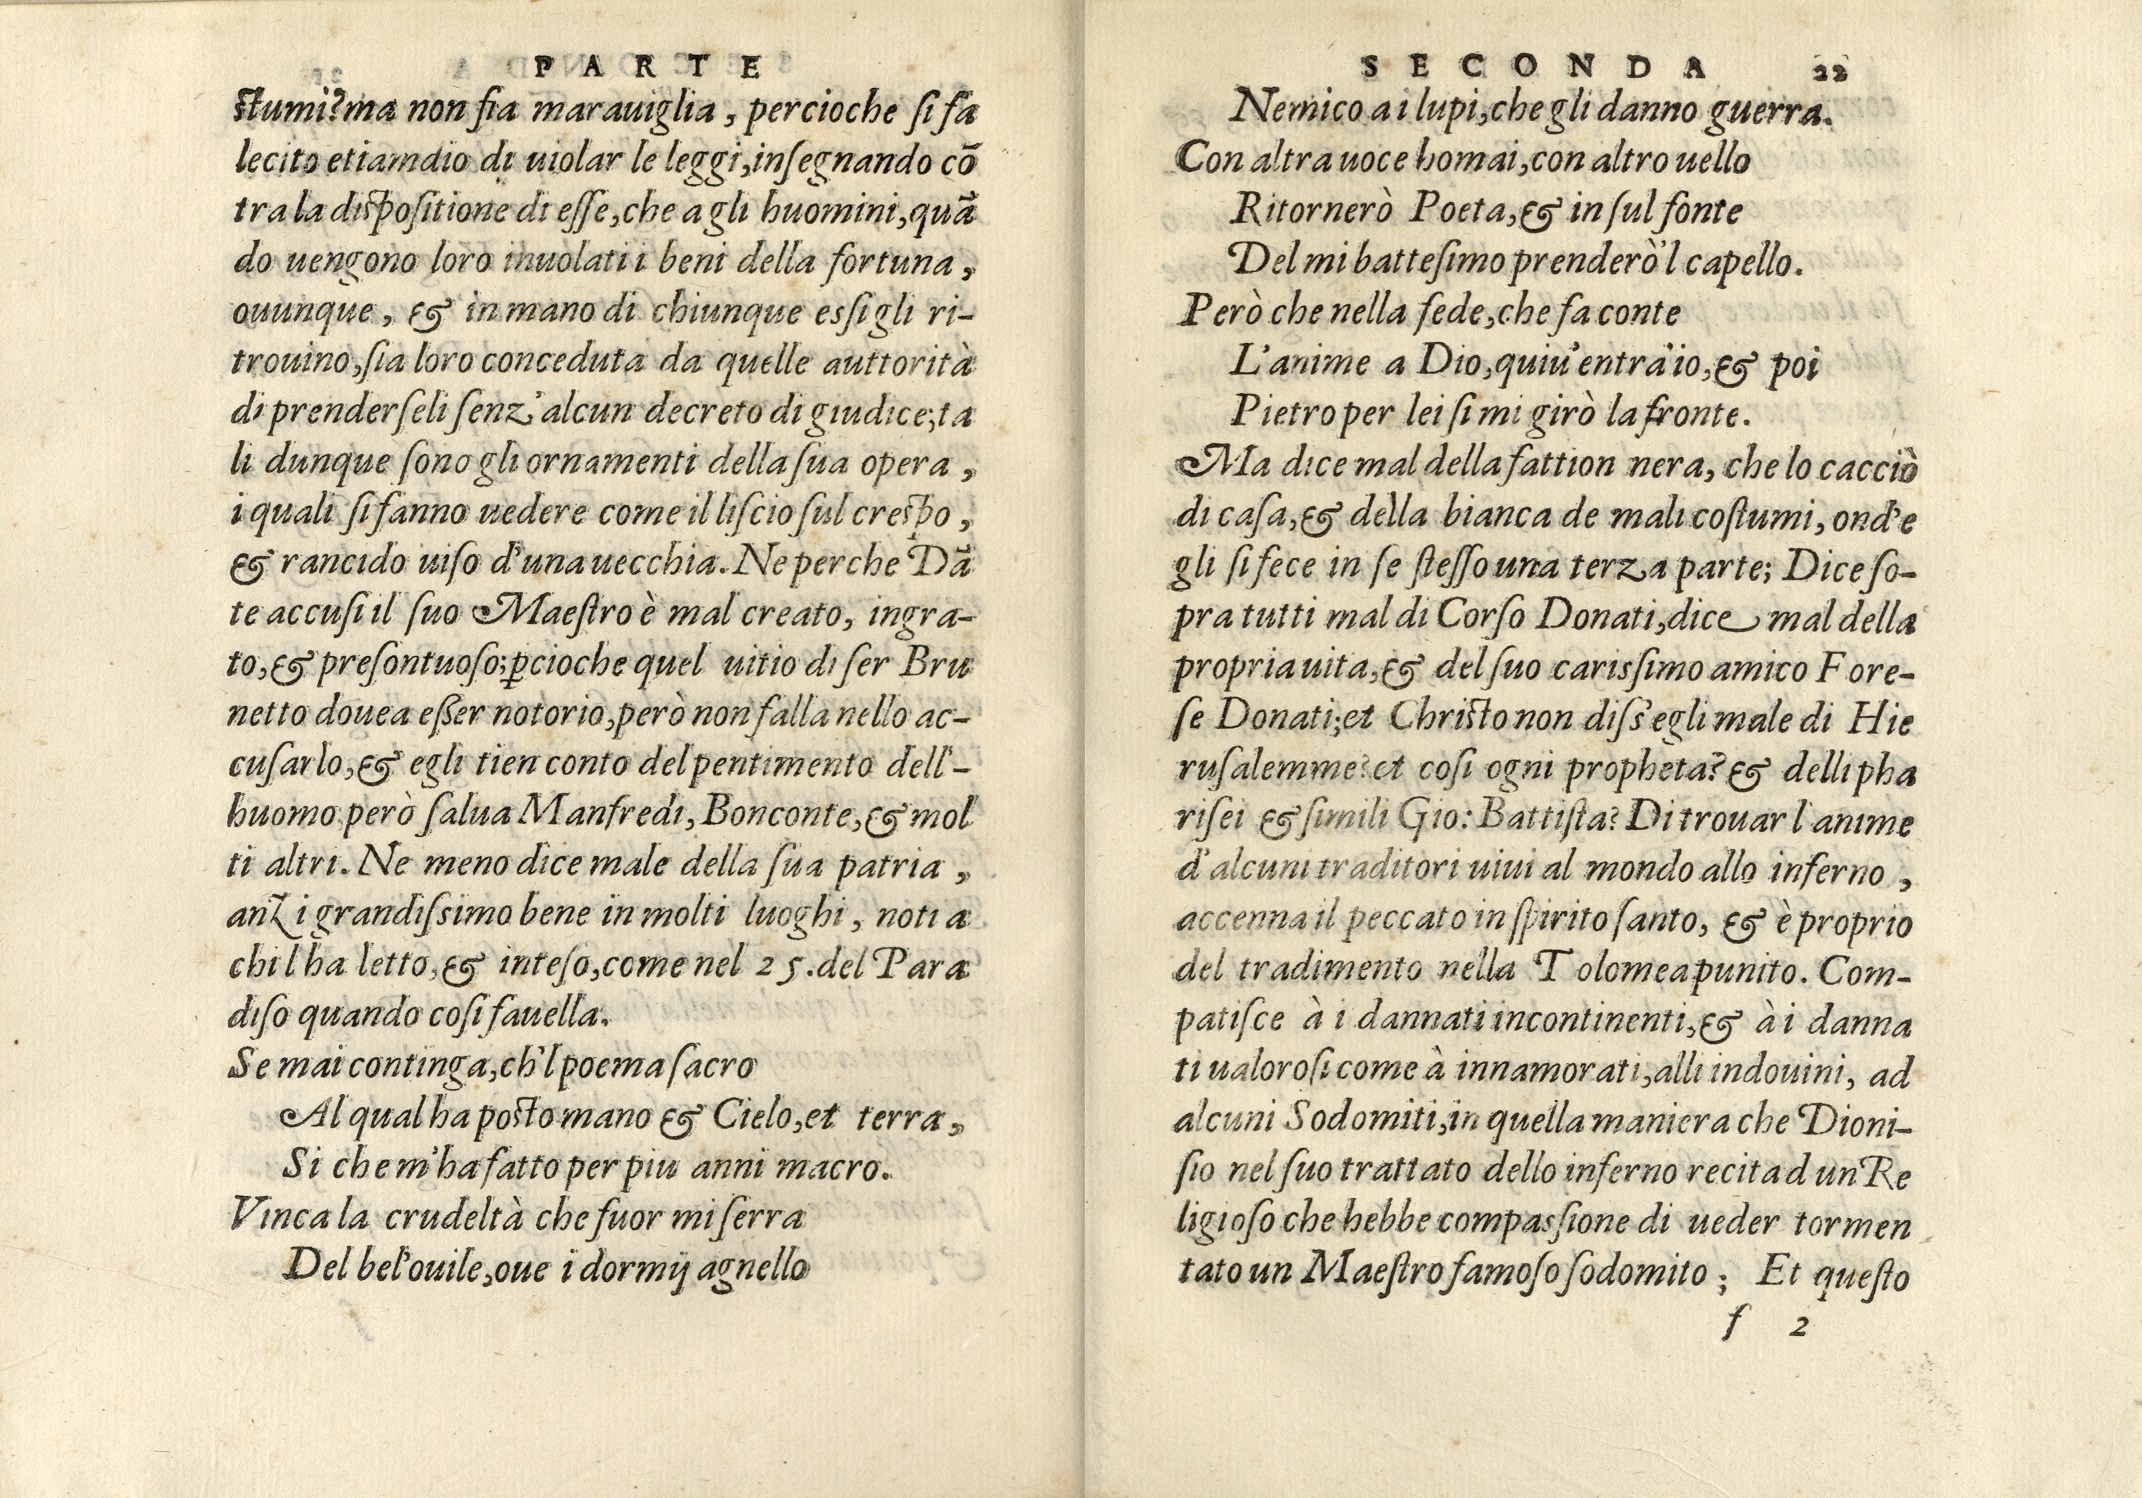 PARTE
ſtumi? ma non fia marauiglia, percioche ſi fa
lecito etiamdio di uiolar le leggi, inſegnando cō
tra la diſpoſitione di eſſe, che a gli huomini, quā
do uengono loro inuolati i beni della fortuna,
ouunque, & in mano di chiunque esſi gli ri-
trouino, ſia loro conceduta da quelle auttorità
di prenderſeli ſenz'alcun decreto di giudice; ta
li dunque ſono gli ornamenti della ſua opera,
i quali ſi fanno uedere come il liſcio ſul creſpo,
& rancido uiſo d'una uecchia. Ne perche Dā
te accuſi il ſuo Maeſtro è mal creato, ingra-
to, & preſontuoſo; ꝑcioche quel uitio di ſer Bru
netto douea eßer notorio, però non falla nello ac-
cuſarlo, & egli tien conto del pentimento dell'-
huomo però ſalua Manfredi, Bonconte, & mol
ti altri. Ne meno dice male della ſua patria,
anzi grandiſsimo bene in molti luoghi, noti a
chi l ha letto, & inteſo, come nel 25. del Para
diſo quando coſi fauella.
Se mai continga, ch'l poema ſacro
Al qual ha poſto mano & Cielo, et terra,
Si che m'ha fatto per piu anni macro.
Vinca la crudeltà che fuor mi ſerra
Del bel'ouile, oue i dormij agnello
SECONDA 22
Nemico a i lupi, che gli danno guerra.
Con altra uoce homai, con altro uello
Ritornerò Poeta, & in ſul fonte
Del mi batteſimo prenderò'l capello.
Però che nella fede, che fa conte
L'anime a Dio, quiu'entra'io, & poi
Pietro per lei ſi mi girò la fronte.
Ma dice mal della fattion nera, che lo cacciò
di caſa, & della bianca de mali coſtumi, ond'e
gli ſi fece in ſe ſteſſo una terza parte; Dice ſo-
pra tutti mal di Corſo Donati, dice mal della
propria uita, & del ſuo carisſimo amico Fore-
ſe Donati; et Chriſto non diſs'egli male di Hie
ruſalemme? et coſi ogni propheta? & delli pha
riſei & ſimili Gio: Battiſta? Di trouar l'anime
d'alcuni traditori uiui al mondo allo inferno,
accenna il peccato in ſpirito ſanto, & è proprio
del tradimento nella Tolomea punito. Com-
patiſce à i dannati incontinenti, & à i danna
ti ualoroſi come à innamorati, alli indouini, ad
alcuni Sodomiti, in quella maniera che Dioni-
ſio nel ſuo trattato dello inferno recita d un Re
ligioſo che hebbe compasſione di ueder tormen
tato un Maeſtro famoſo ſodomito; Et queſto
f 2